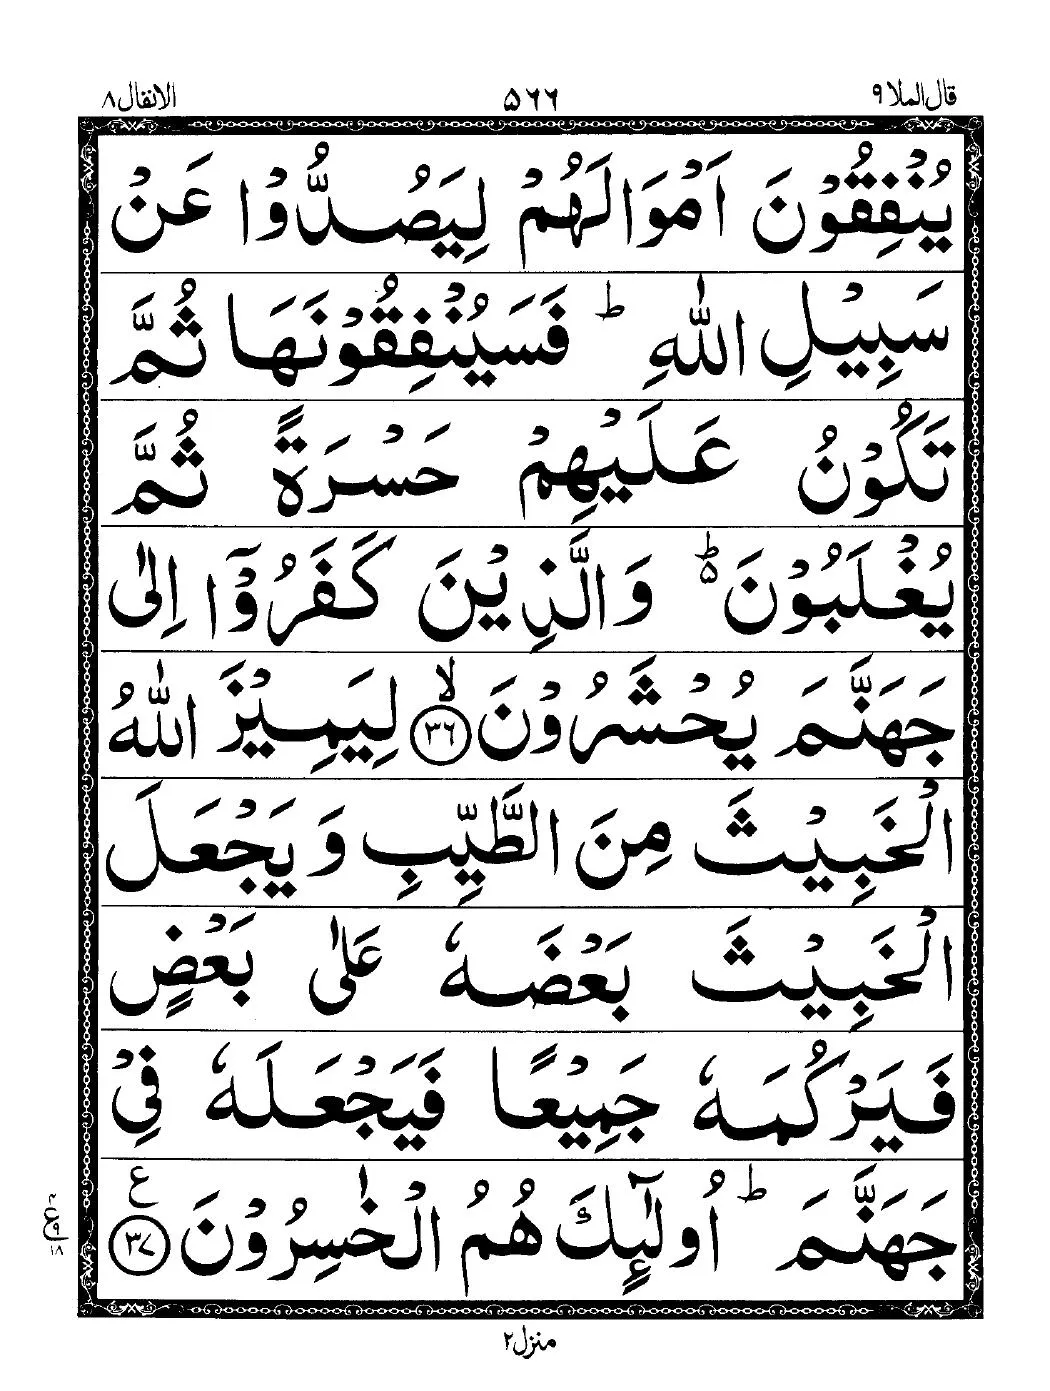 قال الملا ۹ ۵۶۶ الانفال ۸
يُنْفِقُوْنَ اَمْوَالَهُمْ لِيَصُدُّوْا عَنْ
سَبِيْلِ اللّٰهِ ؕ فَسَيُنْفِقُوْنَهَا ثُمَّ
تَكُوْنُ عَلَيْهِمْ حَسْرَةً ثُمَّ
يُغْلَبُوْنَ ۵ؕ وَالَّذِيْنَ كَفَرُوْۤا اِلٰى
جَهَنَّمَ يُحْشَرُوْنَ ۙ ﴿۳۶﴾ لِيَمِيْزَ اللّٰهُ
الْخَبِيْثَ مِنَ الطَّيِّبِ وَيَجْعَلَ
الْخَبِيْثَ بَعْضَهٗ عَلٰى بَعْضٍ
فَيَرْكُمَهٗ جَمِيْعًا فَيَجْعَلَهٗ فِيْ
جَهَنَّمَ ؕ اُولٰٓئِكَ هُمُ الْخٰسِرُوْنَ ﴿۳۷﴾ ع
منزل ۲